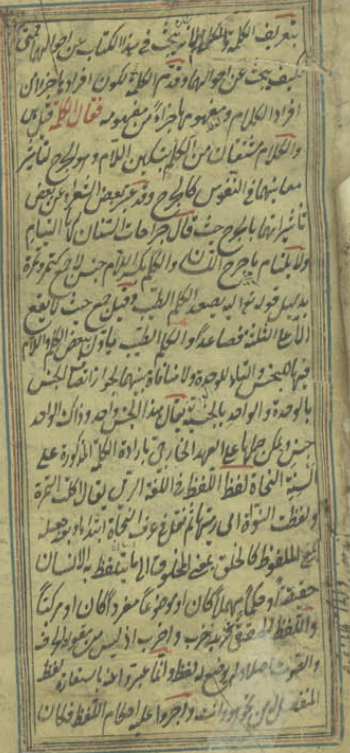 بتعريف الكلمة والكلام لانه يبحث في هذا الكتاب عن احوالهما فمتى
كيف يبحث عن احوالهما وقدم الكلمة لكون افرادها جزءا من
افراد الكلام ومفهومها جزءا من مفهومه فقال الكلمة قيل هي
والكلام مشتقان من الكلم بتسكين اللام وهو الجرح لتاثير
معانيهما في النفوس كالجرح وقد عبر بعض الشعراء عن بعض
تاثيراتهما بالجرح حيث قال جراحات السنان لها التيام
ولا يلتام ما جرح اللسان والكلم بكسر اللام جنس لا جمع كتمر وتمرة
بدليل قوله تعالى اليه يصعد الكلم الطيب وقيل جمع حيث لا يقع
الا على الثلثة فصاعدا والكلم الطيب ماول ببعض الكلم واللام
فيها للجنس والتاء للوحدة ولا منافاة بينهما لجواز اتصاف الجنس
بالوحدة والواحد بالجنسية يقال هذا الجنس واحد وذاك الواحد
جنس ويمكن حملها على العهد الخارجي بارادة الكلمة المذكورة على
السنة النحاة لفظ اللفظ في اللغة الرمي يقال اكلت التمرة
ولفظت النواة اي رميتها ثم نقل في عرف النحاة ابتداء او بعد جعله
بمعنى الملفوظ كالخلق بمعنى المخلوق الى ما يتلفظ به الانسان
حقيقة او حكما مهملا كان او موضوعا مفردا كان او مركبا
واللفظ الحقيقي كزيد وضرب واضرب اذ ليس من مقولة الحرف
والصوت اصلا ولم يوضع له لفظ وانما عبروا عنه باستعارة لفظ
المنفصل من نحو هو وانت واجروا عليه احكام اللفظ فكان